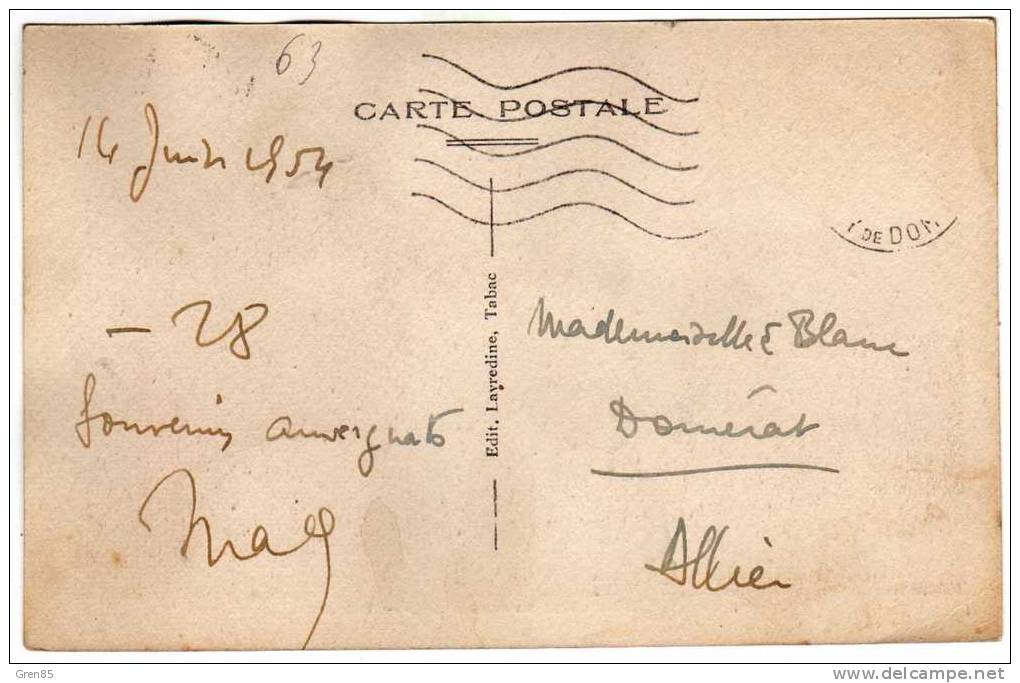 63
CARTE POSTALE
14 Juin 1954
- 28
Souvenirs auvergnats
Edit. Layredine, Tabac
Y DE DOM
Mademoiselle E Blanc
Domérat
Allier
Gren85
www.delcampe.net